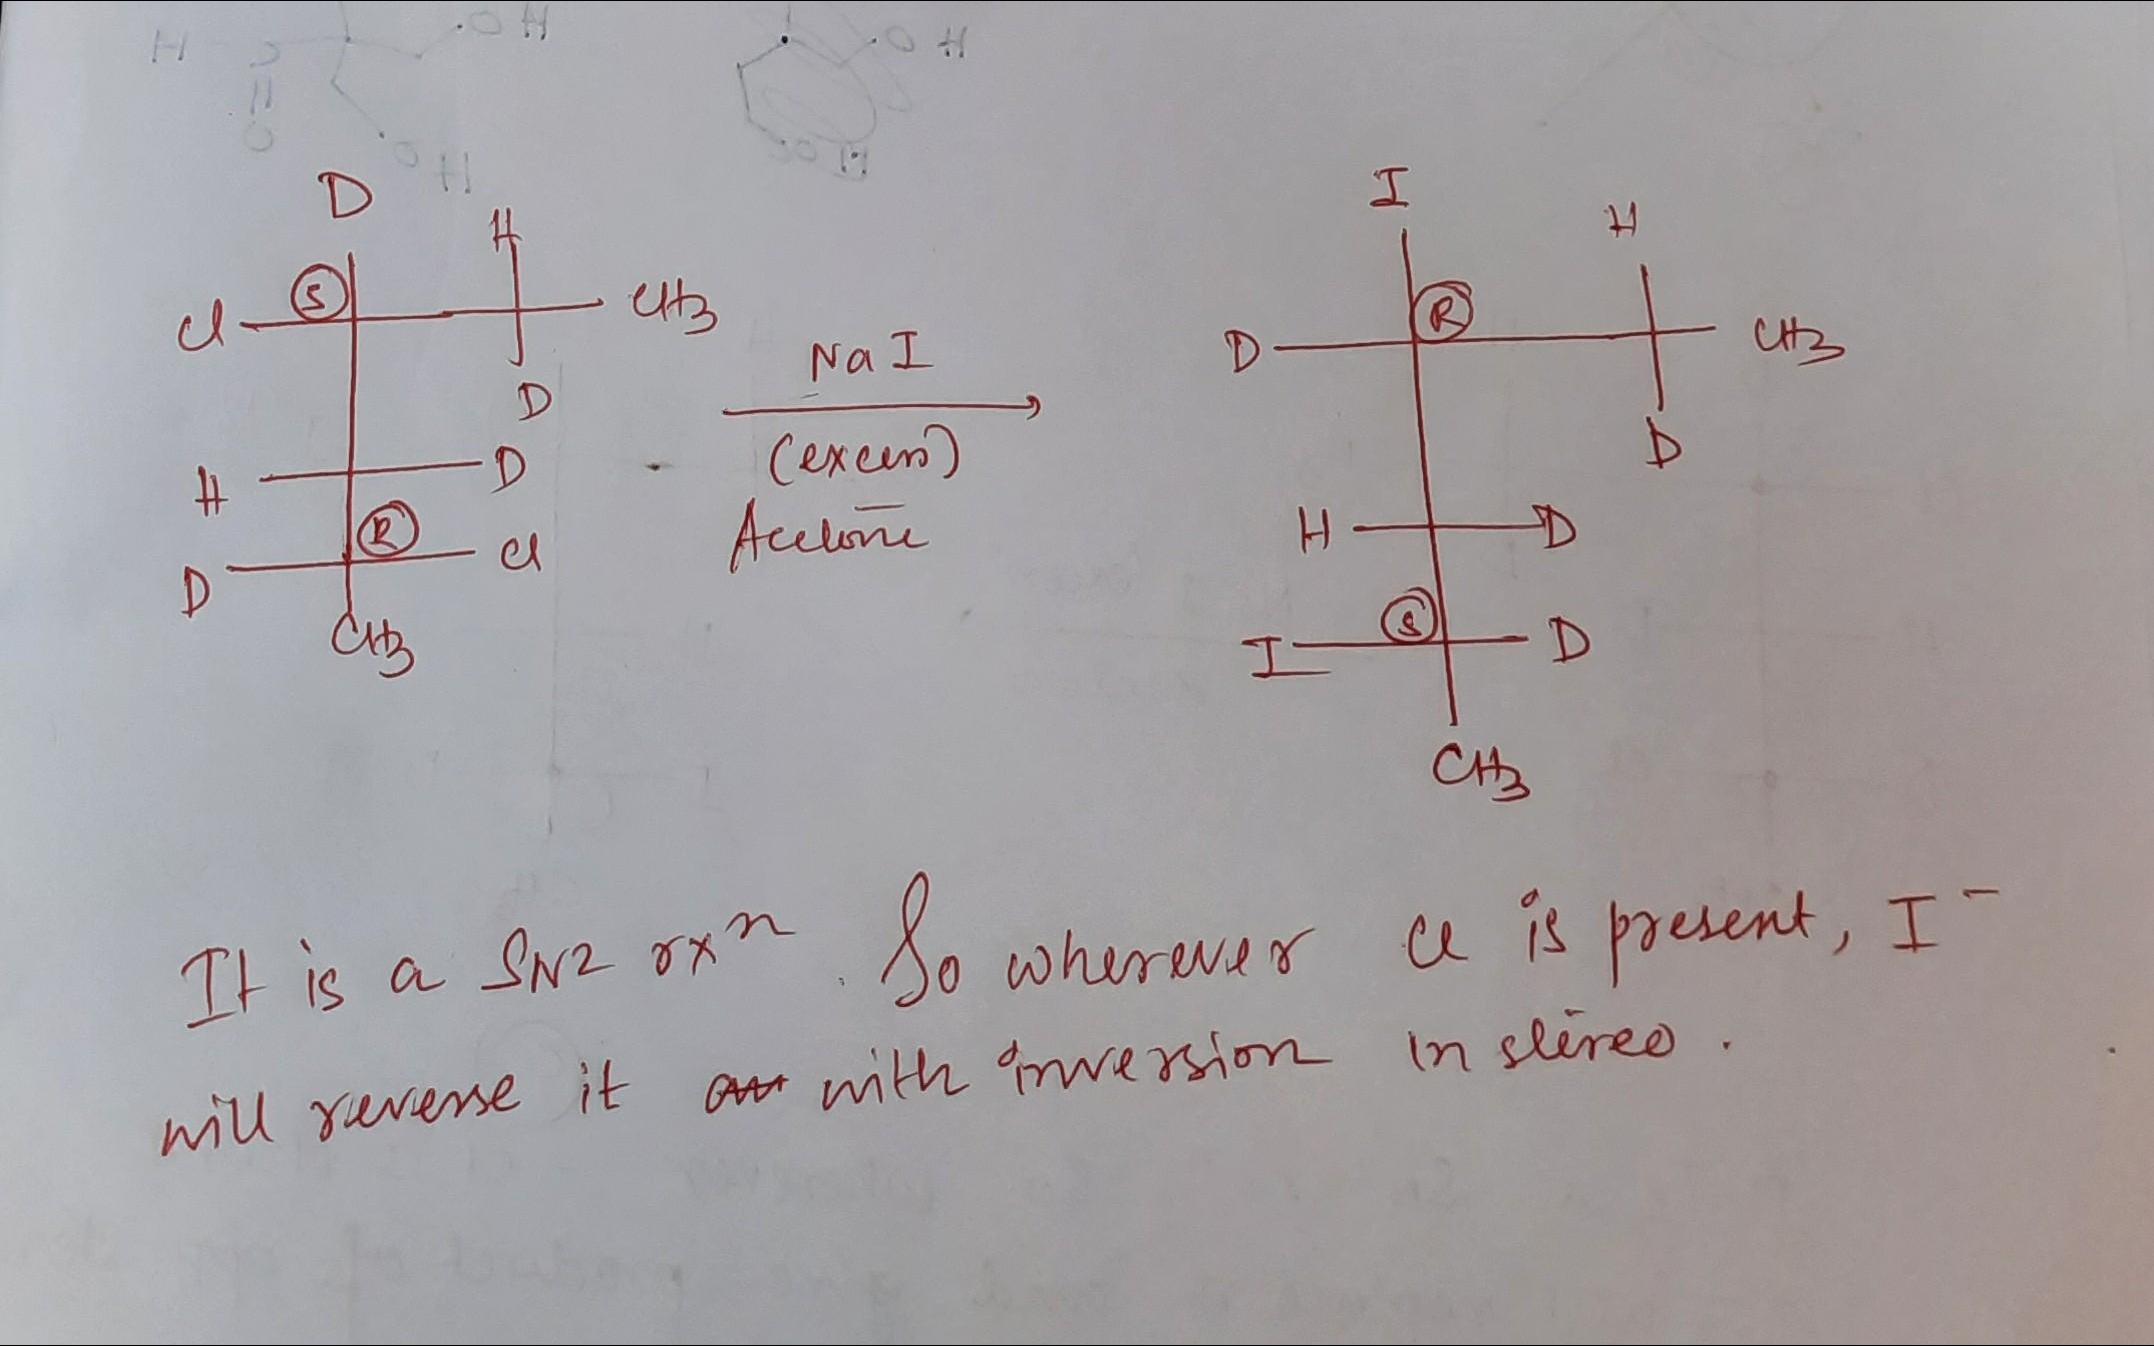 D
H
Cl S CH3
D
H D
R
D Cl
CH3
Na I
(excess)
Acetone
I
H
D R CH3
D
H D
S
I D
CH3
It is a SN2 rxn. So wherever Cl is present, I⁻
will reverse it with inversion in stereo.